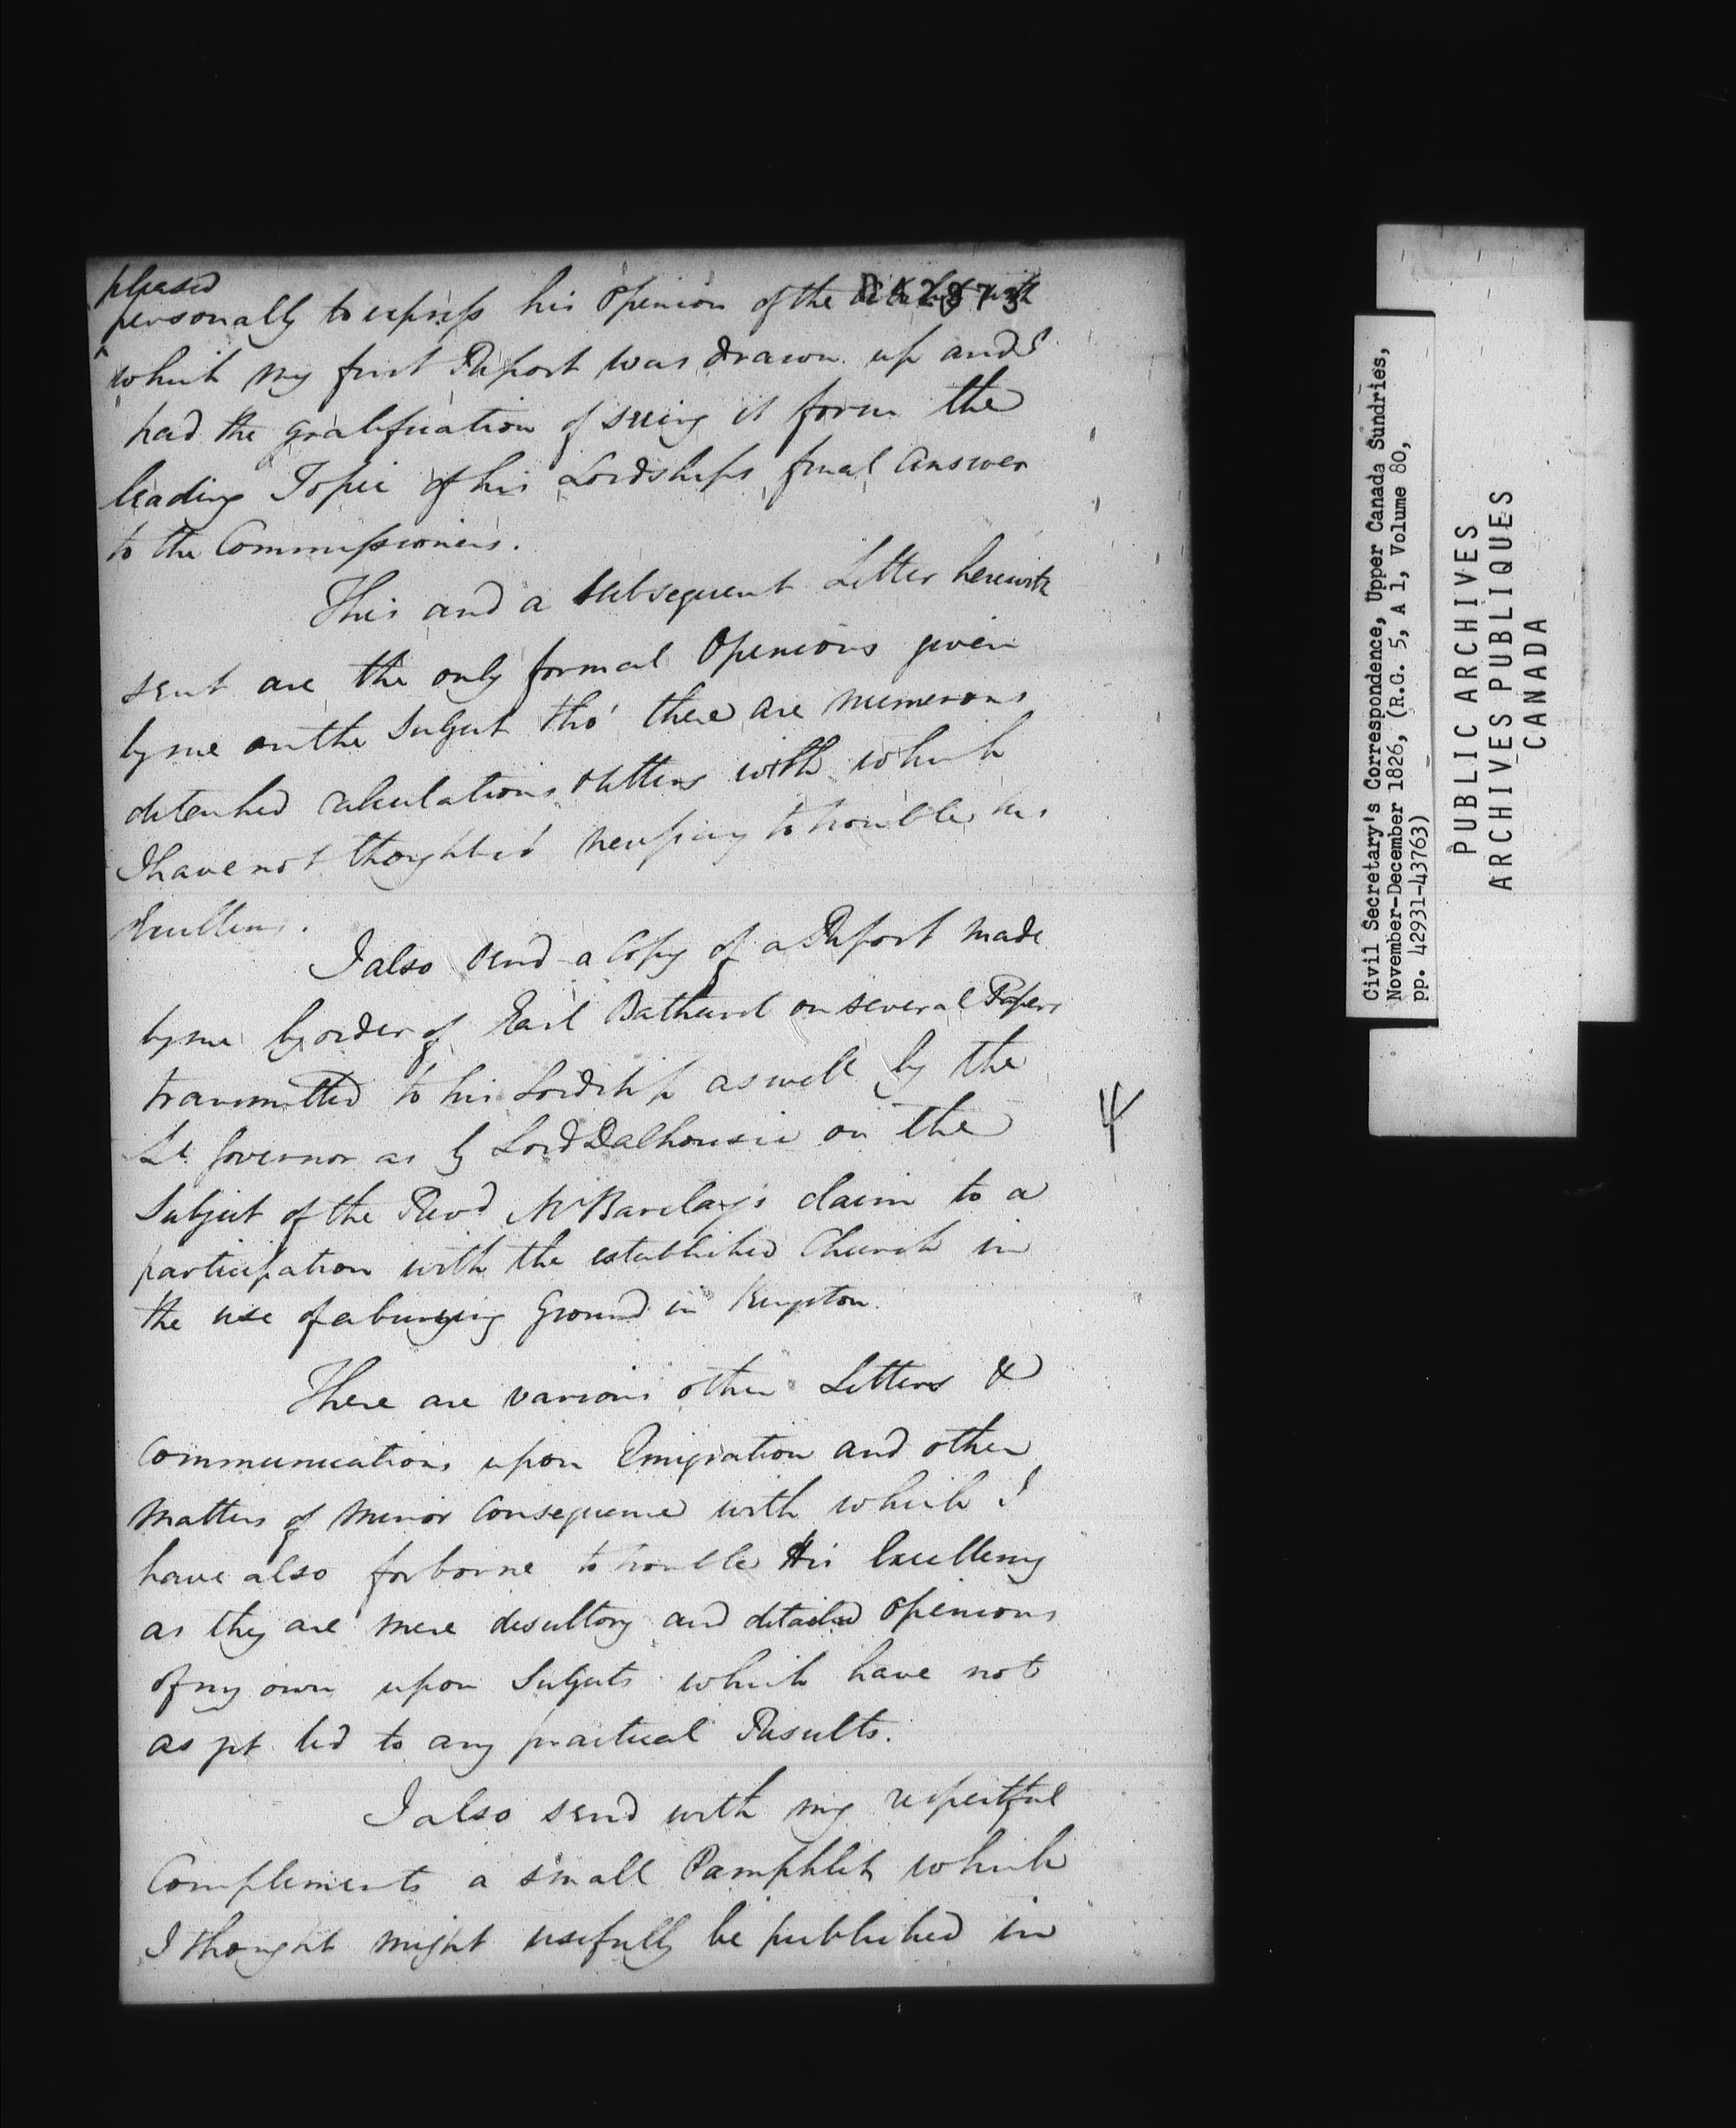 pleased
personally to express his Opinion of the with
which my first Report was drawn up and I
had the gratification of seeing it form the
leading Topic of his Lordships final Answer
to the Commissioners.
This and a subsequent Letter herewith
sent are the only formal Opinions given
by me on the Subject tho' there are numerous
detached calculations & letters with which
I have not thought it necessary to trouble his
Excellency.
I also send a Copy of a Report made
by me by order of Earl Bathurst on several Papers
transmitted to his Lordship as well by the
Lt Governor as by Lord Dalhousie on the
Subject of the Revd Mr Barclay's claim to a
participation with the established Church in
the use of a burying Ground in Kingston.
There are various other Letters &
Communications upon Emigration and other
Matters of Minor Consequence with which I
have also forborne to trouble His Excellency
as they are mere desultory and detached opinions
of my own upon Subjects which have not
as yet led to any practical Results.
I also send with my respectful
Compliments a small Pamphlet which
I thought might usefully be published in
Civil Secretary's Correspondence, Upper Canada Sundries,
November-December 1826, (R.G. 5, A 1, Volume 80,
pp. 42931-43763)
PUBLIC ARCHIVES
ARCHIVES PUBLIQUES
CANADA